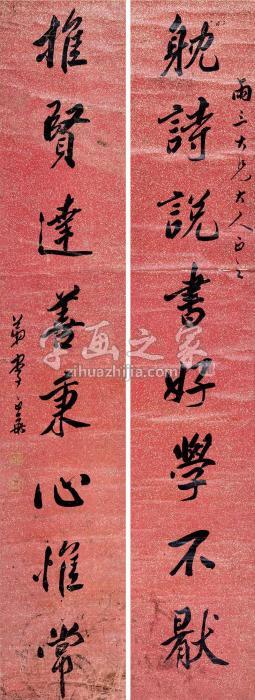 雨三大兄大人正之
躭詩説書好學不猒
推賢達善秉心惟常
弟李
字画之家
zihuazhijia.com